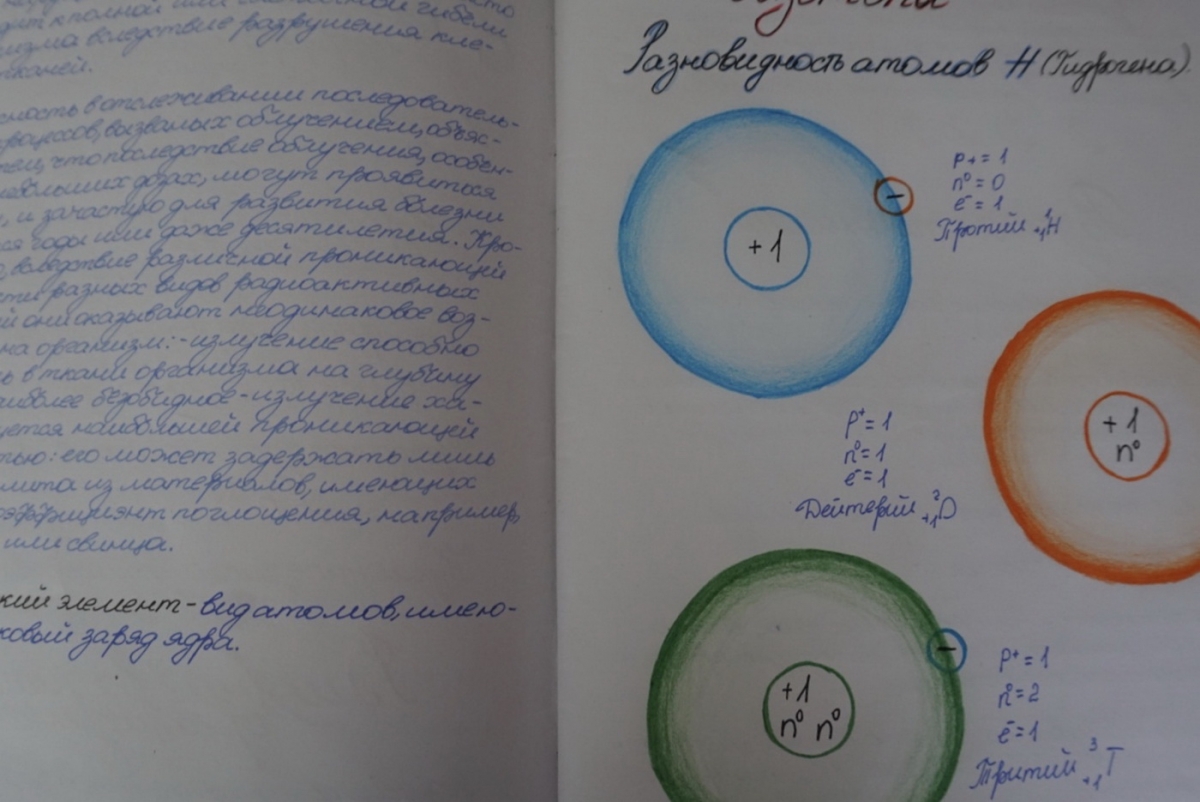 дит к полной или частичной гибели
низма вследствие разрушения кле-
тканей.
ность в отслеживании последователь-
процессов, вызваных облучением, объяс-
тем, что последствие облучения, особен-
небольших дозах, могут проявится
, и зачастую для развития болезни
ся годы или даже десятилетия. Кро-
о, вследствие различной проникающей
сти разных видов радиоактивных
ий они оказывают неодинаковое воз-
на организм: -излучение способно
ь в ткани организма на глубину
аиболее безобидное-излучение ха-
уется наибольшей проникающей
тью: его может задержать лишь
лита из материалов, имеющих
оэффициэнт поглощения, например,
или свинца.
кий элемент-вид атомов, имею-
ковый заряд ядра.
Разновидность атомов H (Гидрогена)
+1
−
p+ = 1
n⁰ = 0
e⁻ = 1
Протий ¹₊₁H
+1
n⁰
p⁺ = 1
n⁰ = 1
e⁻ = 1
Дейтерий ²₊₁D
+1
n⁰ n⁰
−
p⁺ = 1
n⁰ = 2
e⁻ = 1
Тритий ³₊₁T